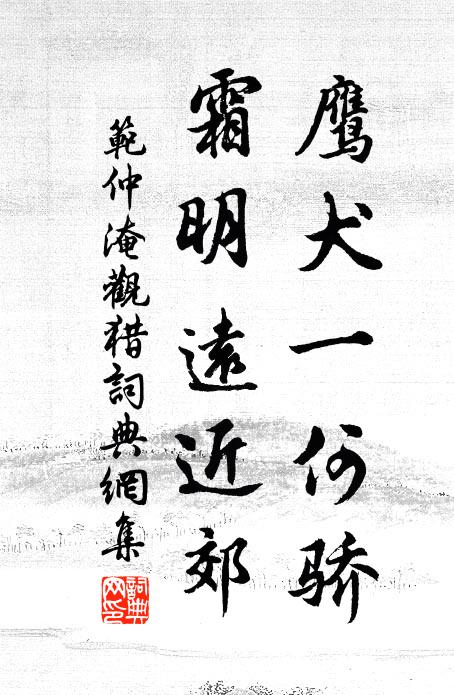 鹰犬一何骄
霜明遠近郊
範仲淹觀猎詞典網集
詞典网印